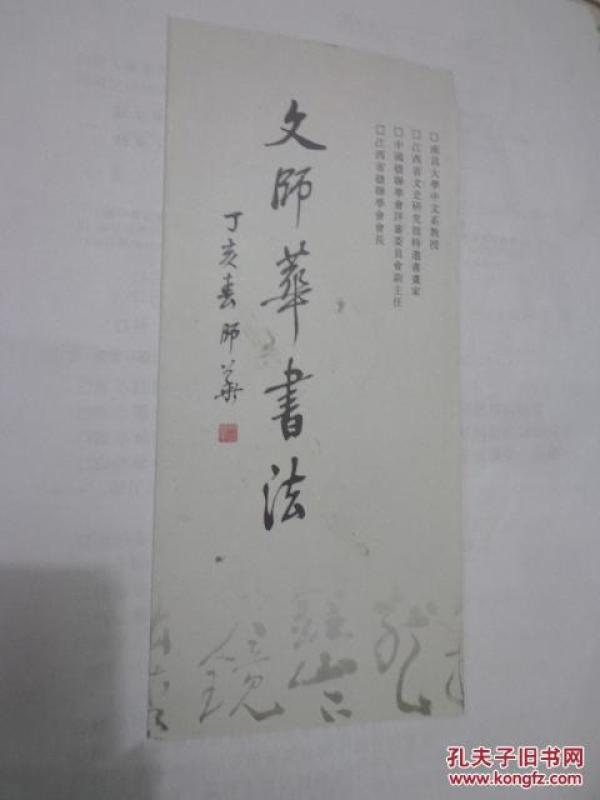 □南昌大學中文系教授
□江西省文史研究館特邀書畫家
□中國楹聯學會評審委員會副主任
□江西省楹聯學會會長
文師華書法
丁亥春師華
鏡
孔夫子旧书网
www.kongfz.com